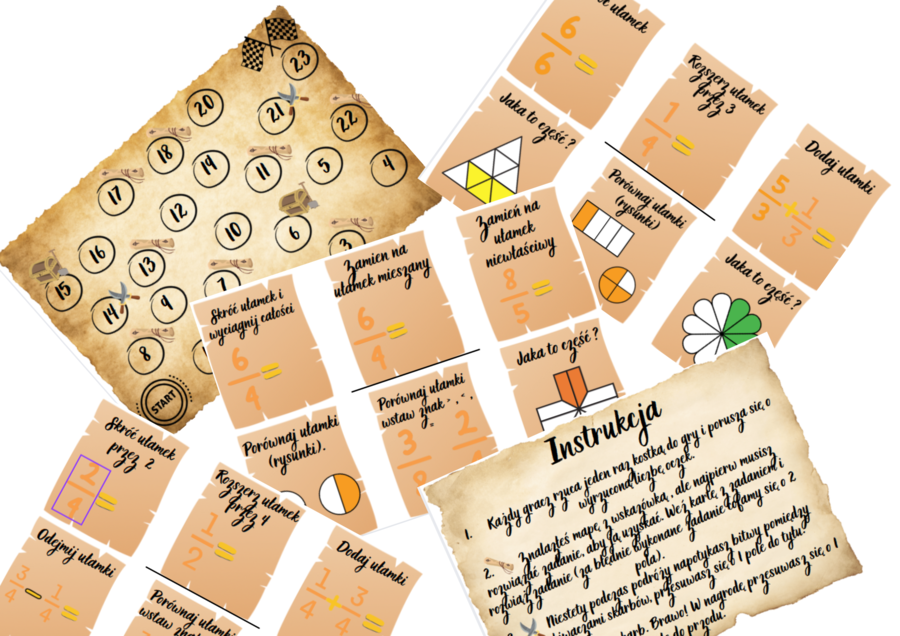 23
20
21
22
18
19
11
5
4
17
12
10
6
3
16
13
15
9
7
14
8
START
ułamek
6/6 =
Jaka to część?
Rozszerz ułamek
przez 3
1/4 =
Porównaj ułamki
(rysunki)
Dodaj ułamki
5/3 + 1/3 =
Jaka to część?
Zamień na
ułamek
niewłaściwy
8/5 =
Jaka to część?
Zamień na
ułamek mieszany
6/4 =
Porównaj ułamki
wstaw znak >, <,
=
3 2
Skróć ułamek i
wyciągnij całości
6/4 =
Porównaj ułamki
(rysunki).
Skróć ułamek
przez 2
2/4 =
Odejmij ułamki
3/4 - 1/4 =
Rozszerz ułamek
przez 4
1/2 =
Porównaj ułamki
wstaw znak
Dodaj ułamki
1/4 + 3/4 =
Instrukcja
1. Każdy gracz rzuca jeden raz kostką do gry i porusza się o
wyrzuconą liczbę oczek.
2. Znalazłeś mapę z wskazówką, ale najpierw musisz
rozwiązać zadanie, aby ją uzyskać. Weź kartę z zadaniem i
rozwiąż zadanie (za błędnie wykonane zadanie cofamy się o 2
pola).
Niestety podczas podróży napotykasz bitwy pomiędzy
skarbów. przesuwasz się o 1 pole do tyłu.
Brawo! W nagrodę, przesuwasz się o 1
do przodu.